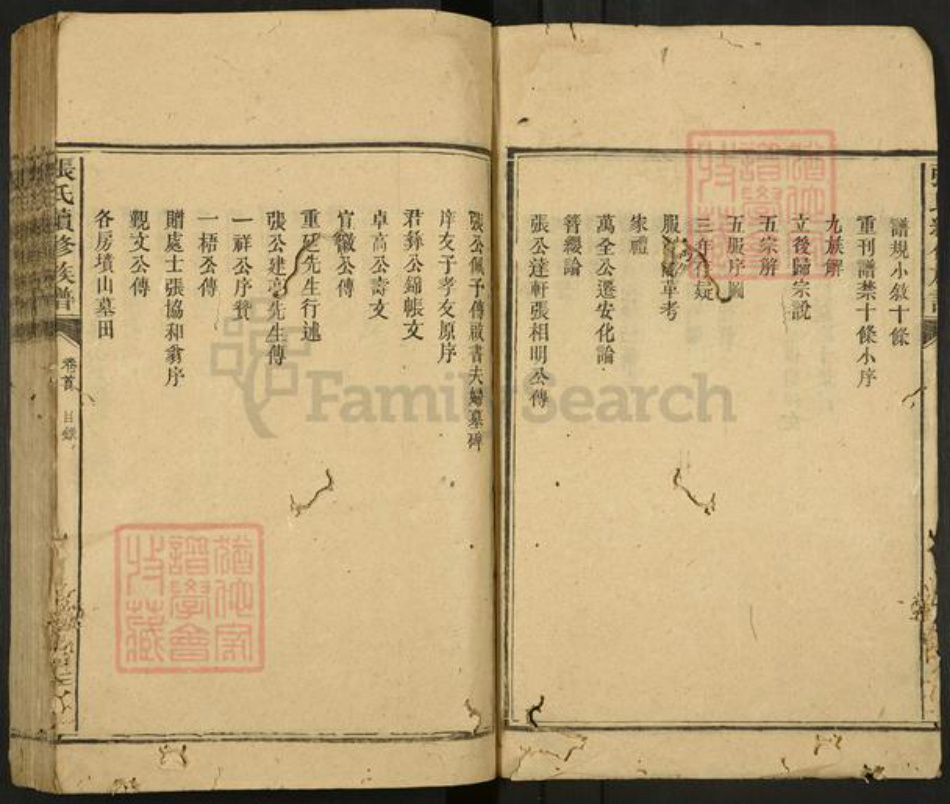 譜規小敘十條
重刊譜禁十條小序
九族解
立後歸宗說
五宗解
五服序圖
三年行疑
服 革考
家禮
萬全公遷安化論
簪纓論
張公達軒張相明公傳
張公佩予傳啟書夫婦墓碑
庠友于孝友原序
君彝公錦帳文
卓高公壽文
官徽公傳
重 先生行述
張公建亭先生傳
一祥公序贊
一梧公傳
贈處士張協和翁序
觀文公傳
各房墳山墓田
張氏續修族譜
卷首 目錄
FamilySearch
猶他家譜學會收藏
猶他家譜學會收藏